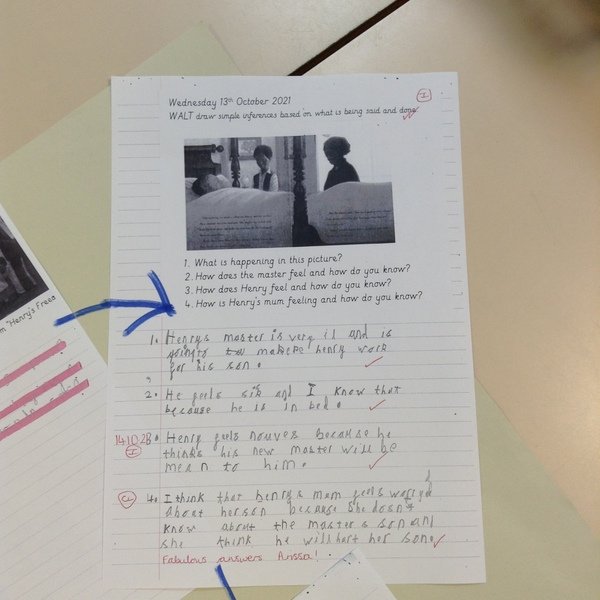 Wednesday 13th October 2021
I
WALT draw simple inferences based on what is being said and done
m "Henry's Freed
1. What is happening in this picture?
2. How does the master feel and how do you know?
3. How does Henry feel and how do you know?
4. How is Henry's mum feeling and how do you know?
1. Henrys master is very il and is
going to makeke henry work
for his son.
2. He feels sik and I know that
because he is in bed.
14.10.21
3. Henry feels nouves because he
I
thinks his new master will be
mean to him.
CL
4. I think that henrys mum feels woryd
about her son because she dosn't
know about the masters son and
she think he will hert her son.
Fabulous answers Arissa!